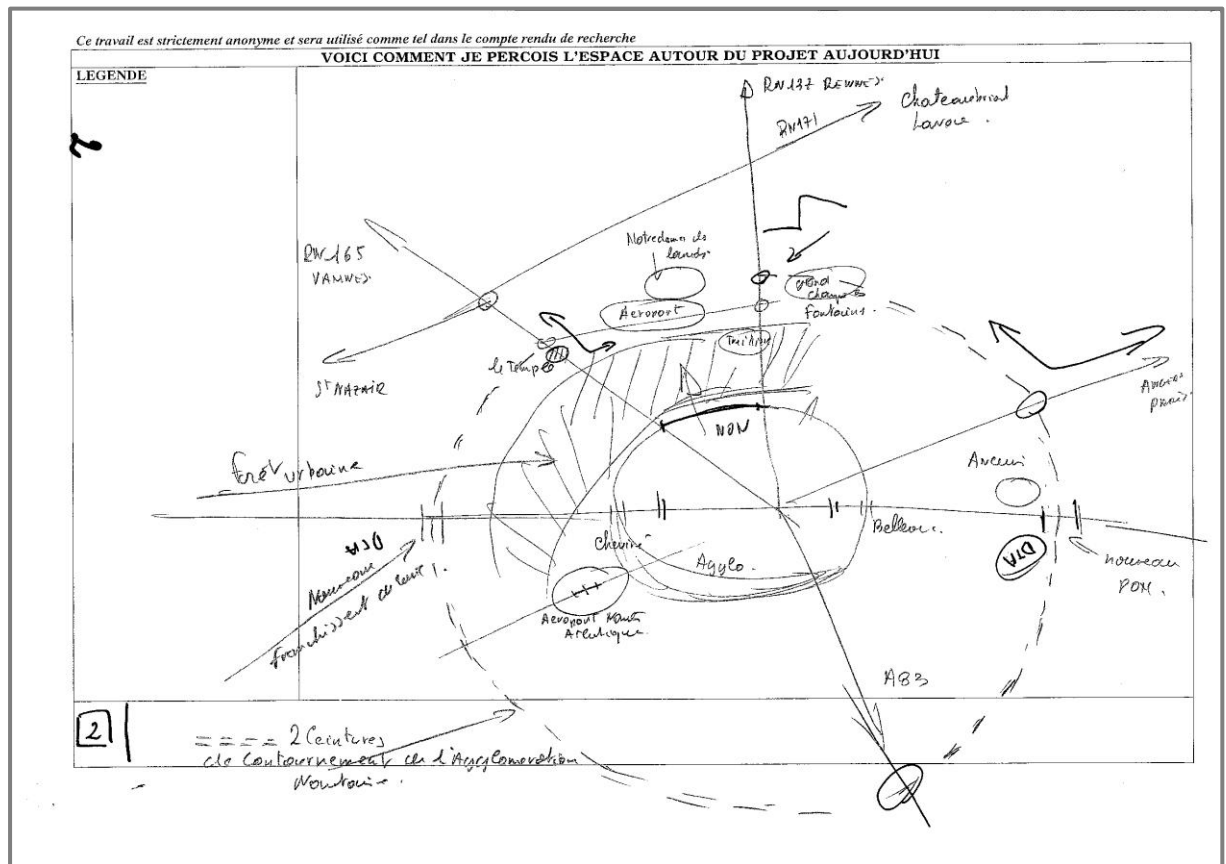 Ce travail est strictement anonyme et sera utilisé comme tel dans le compte rendu de recherche
VOICI COMMENT JE PERCOIS L'ESPACE AUTOUR DU PROJET AUJOURD'HUI
LEGENDE
RN137 RENNES
RN171
Chateaubriand
Lavale
RN165
VANNES
Notredame des
landes
Aeroport
Grand
champs
Fontaines
le Temple
St NAZAIR
NON
ANGERS
PARIS
Forêt urbaine
Ancenis
Cheviré
Bellevue
Agglo.
DTA
DTA
Nouveau
Franchissement
nouveau
PON
Aeroport Nantes
Atlantique
A83
2
==== 2 Ceintures
de Contournement de l'Agglomération
Nantaise.